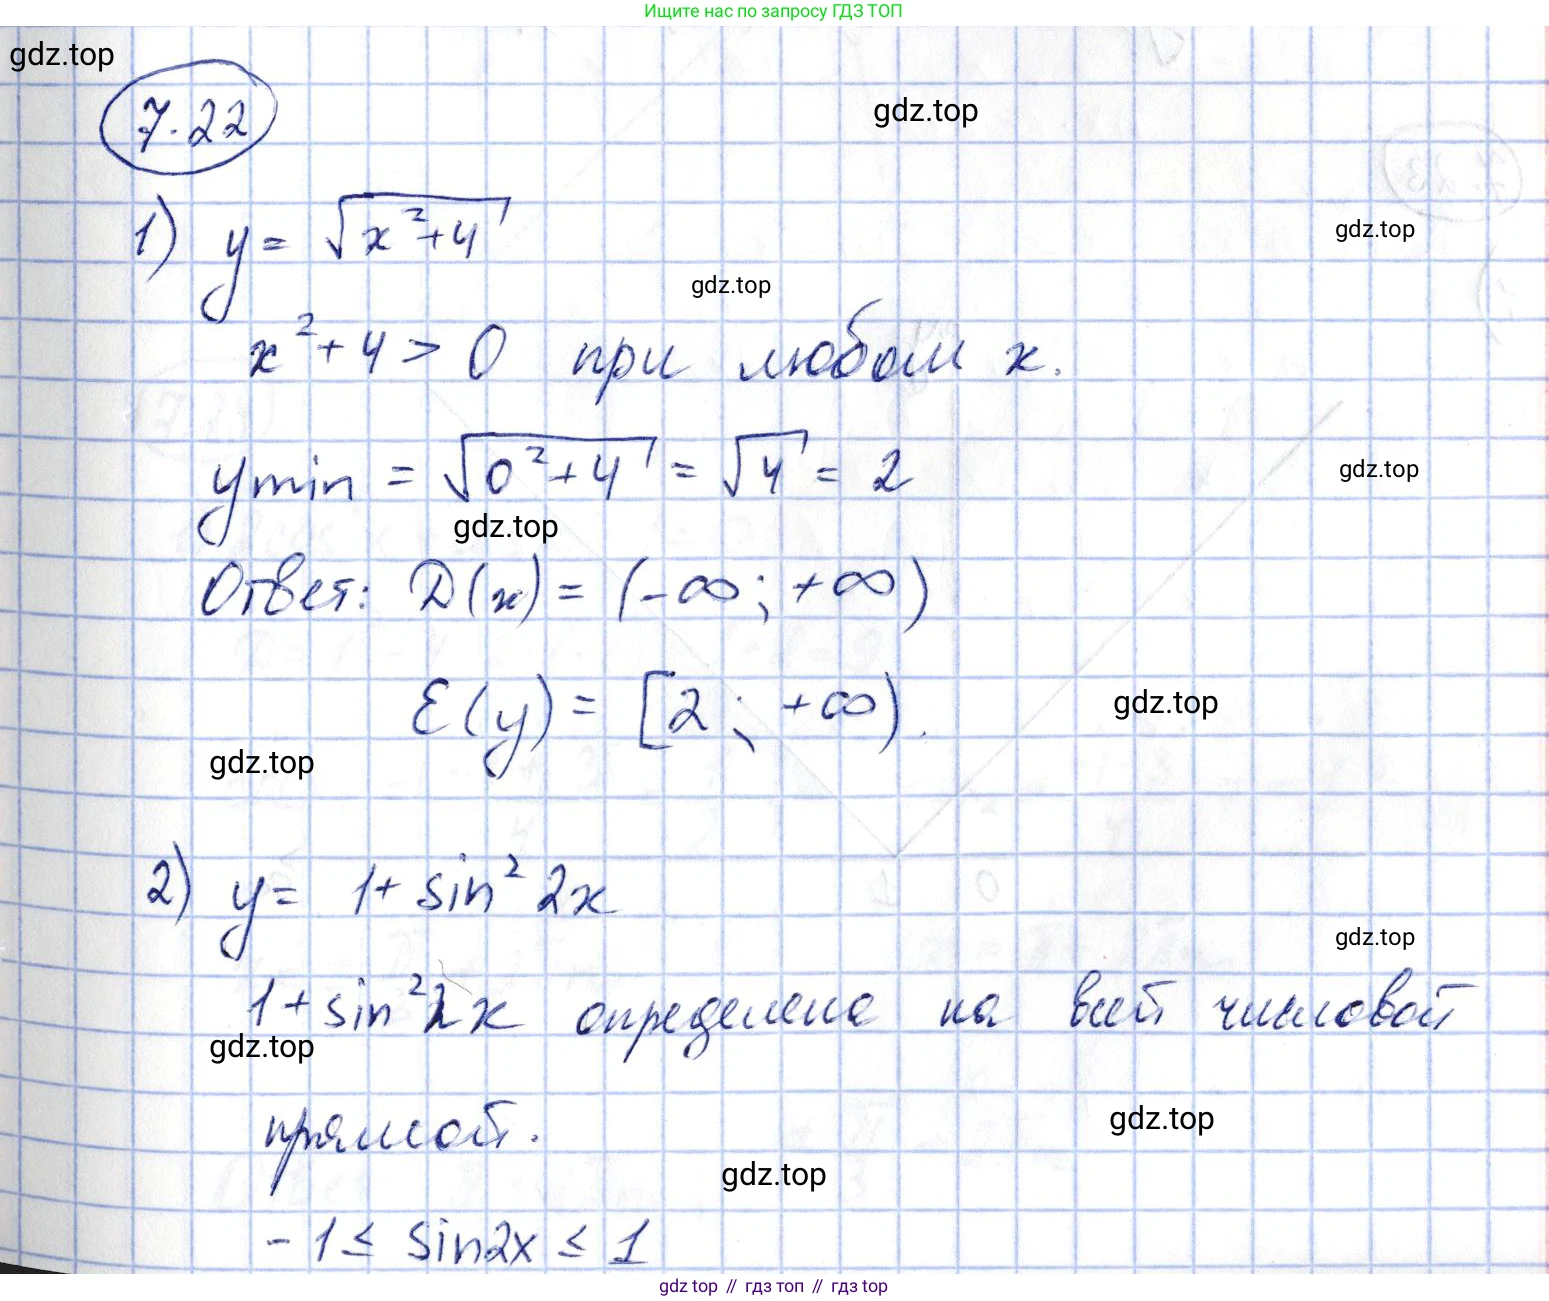 Ищите нас по запросу ГДЗ ТОП
gdz.top
7.22
gdz.top
1) y = √(x²+4)
gdz.top
gdz.top
x² + 4 > 0 при любом x.
y min = √(0²+4) = √4 = 2
gdz.top
gdz.top
Ответ: D(x) = (-∞; +∞)
E(y) = [2; +∞).
gdz.top
gdz.top
2) y = 1 + sin² 2x
gdz.top
1 + sin² 2x определена на всей числовой
gdz.top
прямой.
gdz.top
gdz.top
-1 ≤ sin2x ≤ 1
gdz top // гдз топ // gdz top